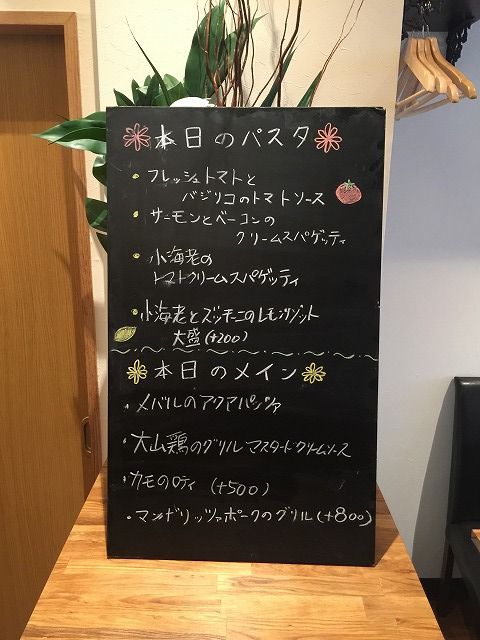 本日のパスタ
フレッシュトマトと
バジリコのトマトソース
サーモンとベーコンの
クリームスパゲッティ
小海老の
トマトクリームスパゲッティ
小海老とズッキーニのレモンリゾット
大盛(+200)
本日のメイン
メバルのアクアパッツァ
大山鶏のグリル マスタードクリームソース
カモのロティ (+500)
マンガリッツァポークのグリル(+800)